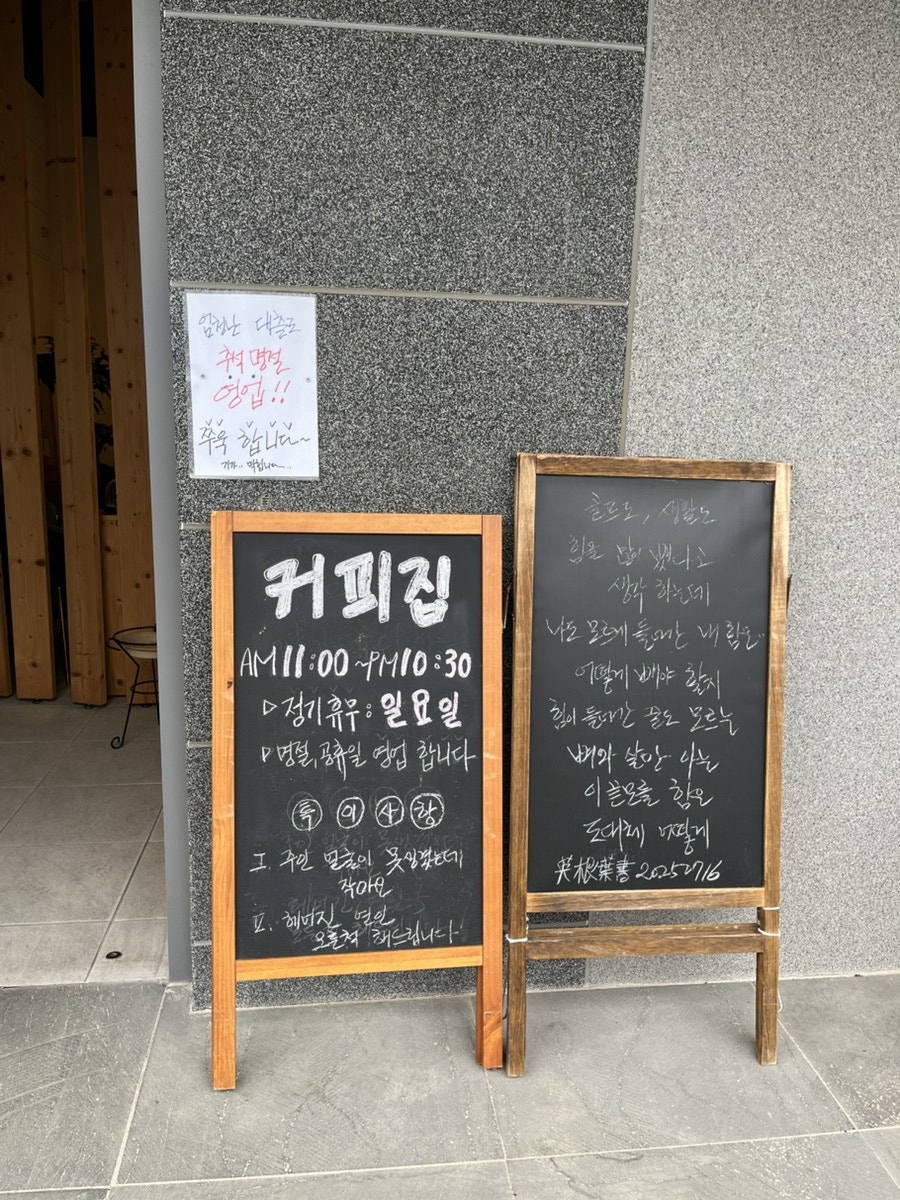 엄청난 대출로
추석 명절
영업!!
쭈욱 합니다~
기가.. 막힙니다...
커피집
AM 11:00 ~ PM 10:30
▷ 정기휴무 : 일요일
▷ 명절, 공휴일 영업 합니다
특 이 사 항
I. 주인 얼굴이 못생겼는데
작아요
II. 헤어진 연인
오른척 해드립니다
골프도, 생활도
힘을 많이 뺐다고
생각 하는데
나도 모르게 들어간 내 힘은
어떻게 빼야 할지
힘이 들어간 줄도 모르는
뼈와 살만 아는
이 쓸모를 힘은
도대체 어떻게
英根葉書 20250716